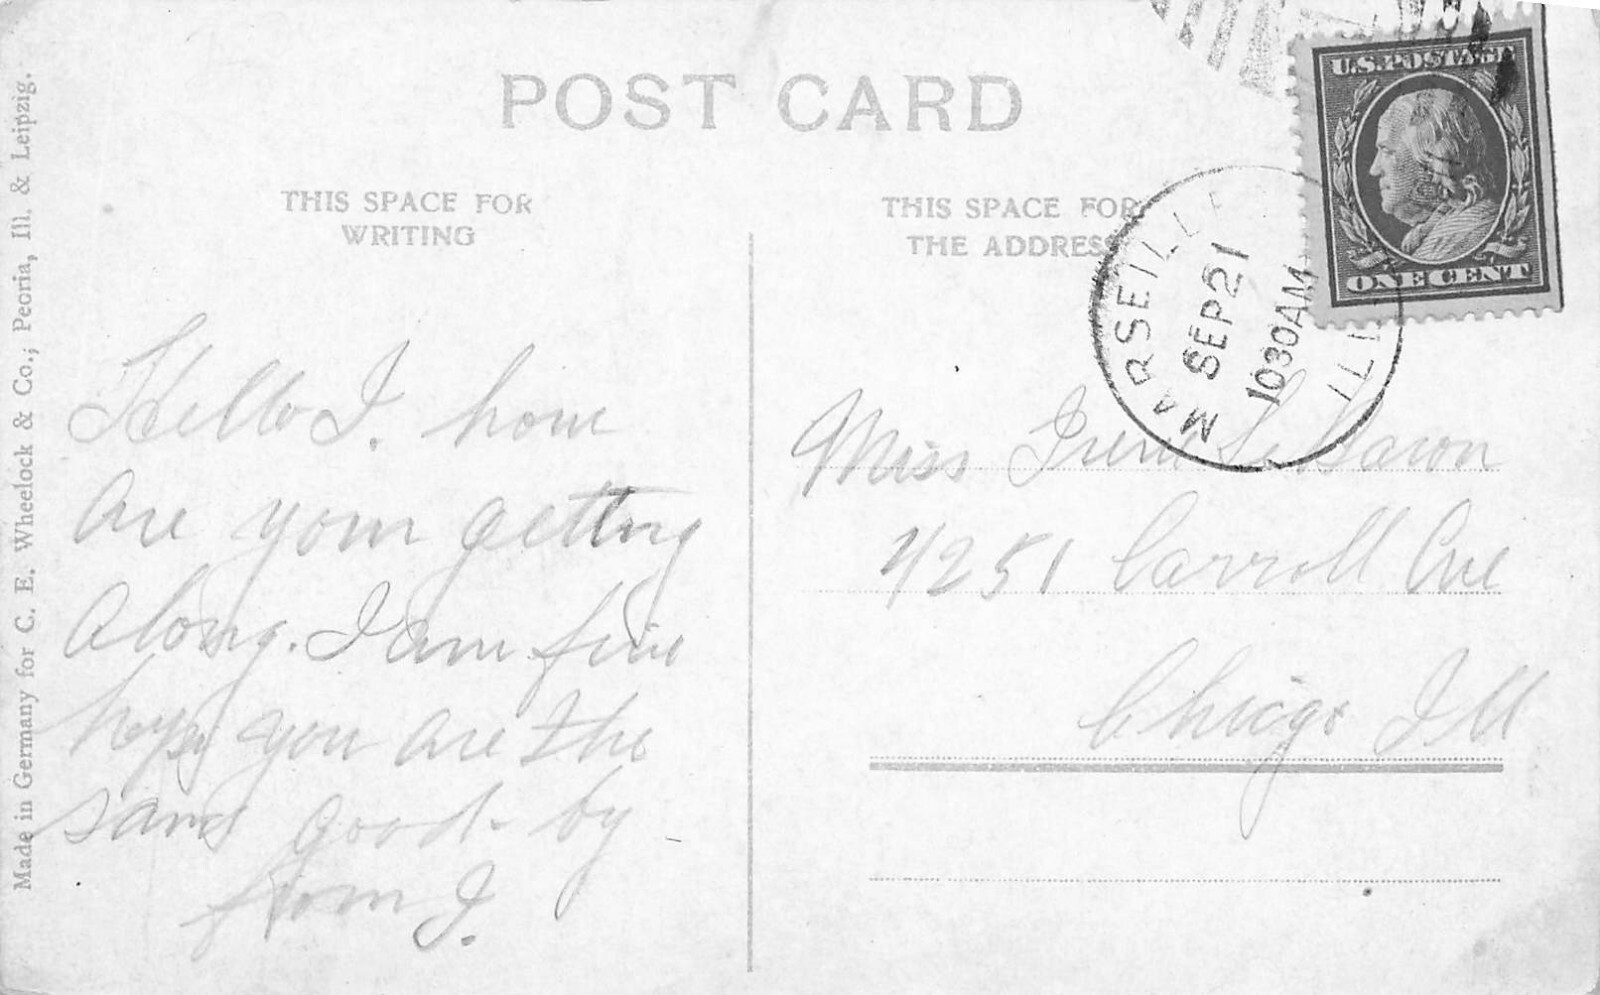 POST CARD
THIS SPACE FOR
WRITING
THIS SPACE FOR
THE ADDRESS
Made in Germany for C. E. Wheelock & Co.; Peoria, Ill. & Leipzig.
U.S. POSTAGE
ONE CENT
MARSEILLE
SEP 21
1030AM
ILL
Hello I. how
are your getting
along. I am fine
hope you are the
same good-by
from I.
Miss Irene
4251 Carroll Ave
Chicago Ill